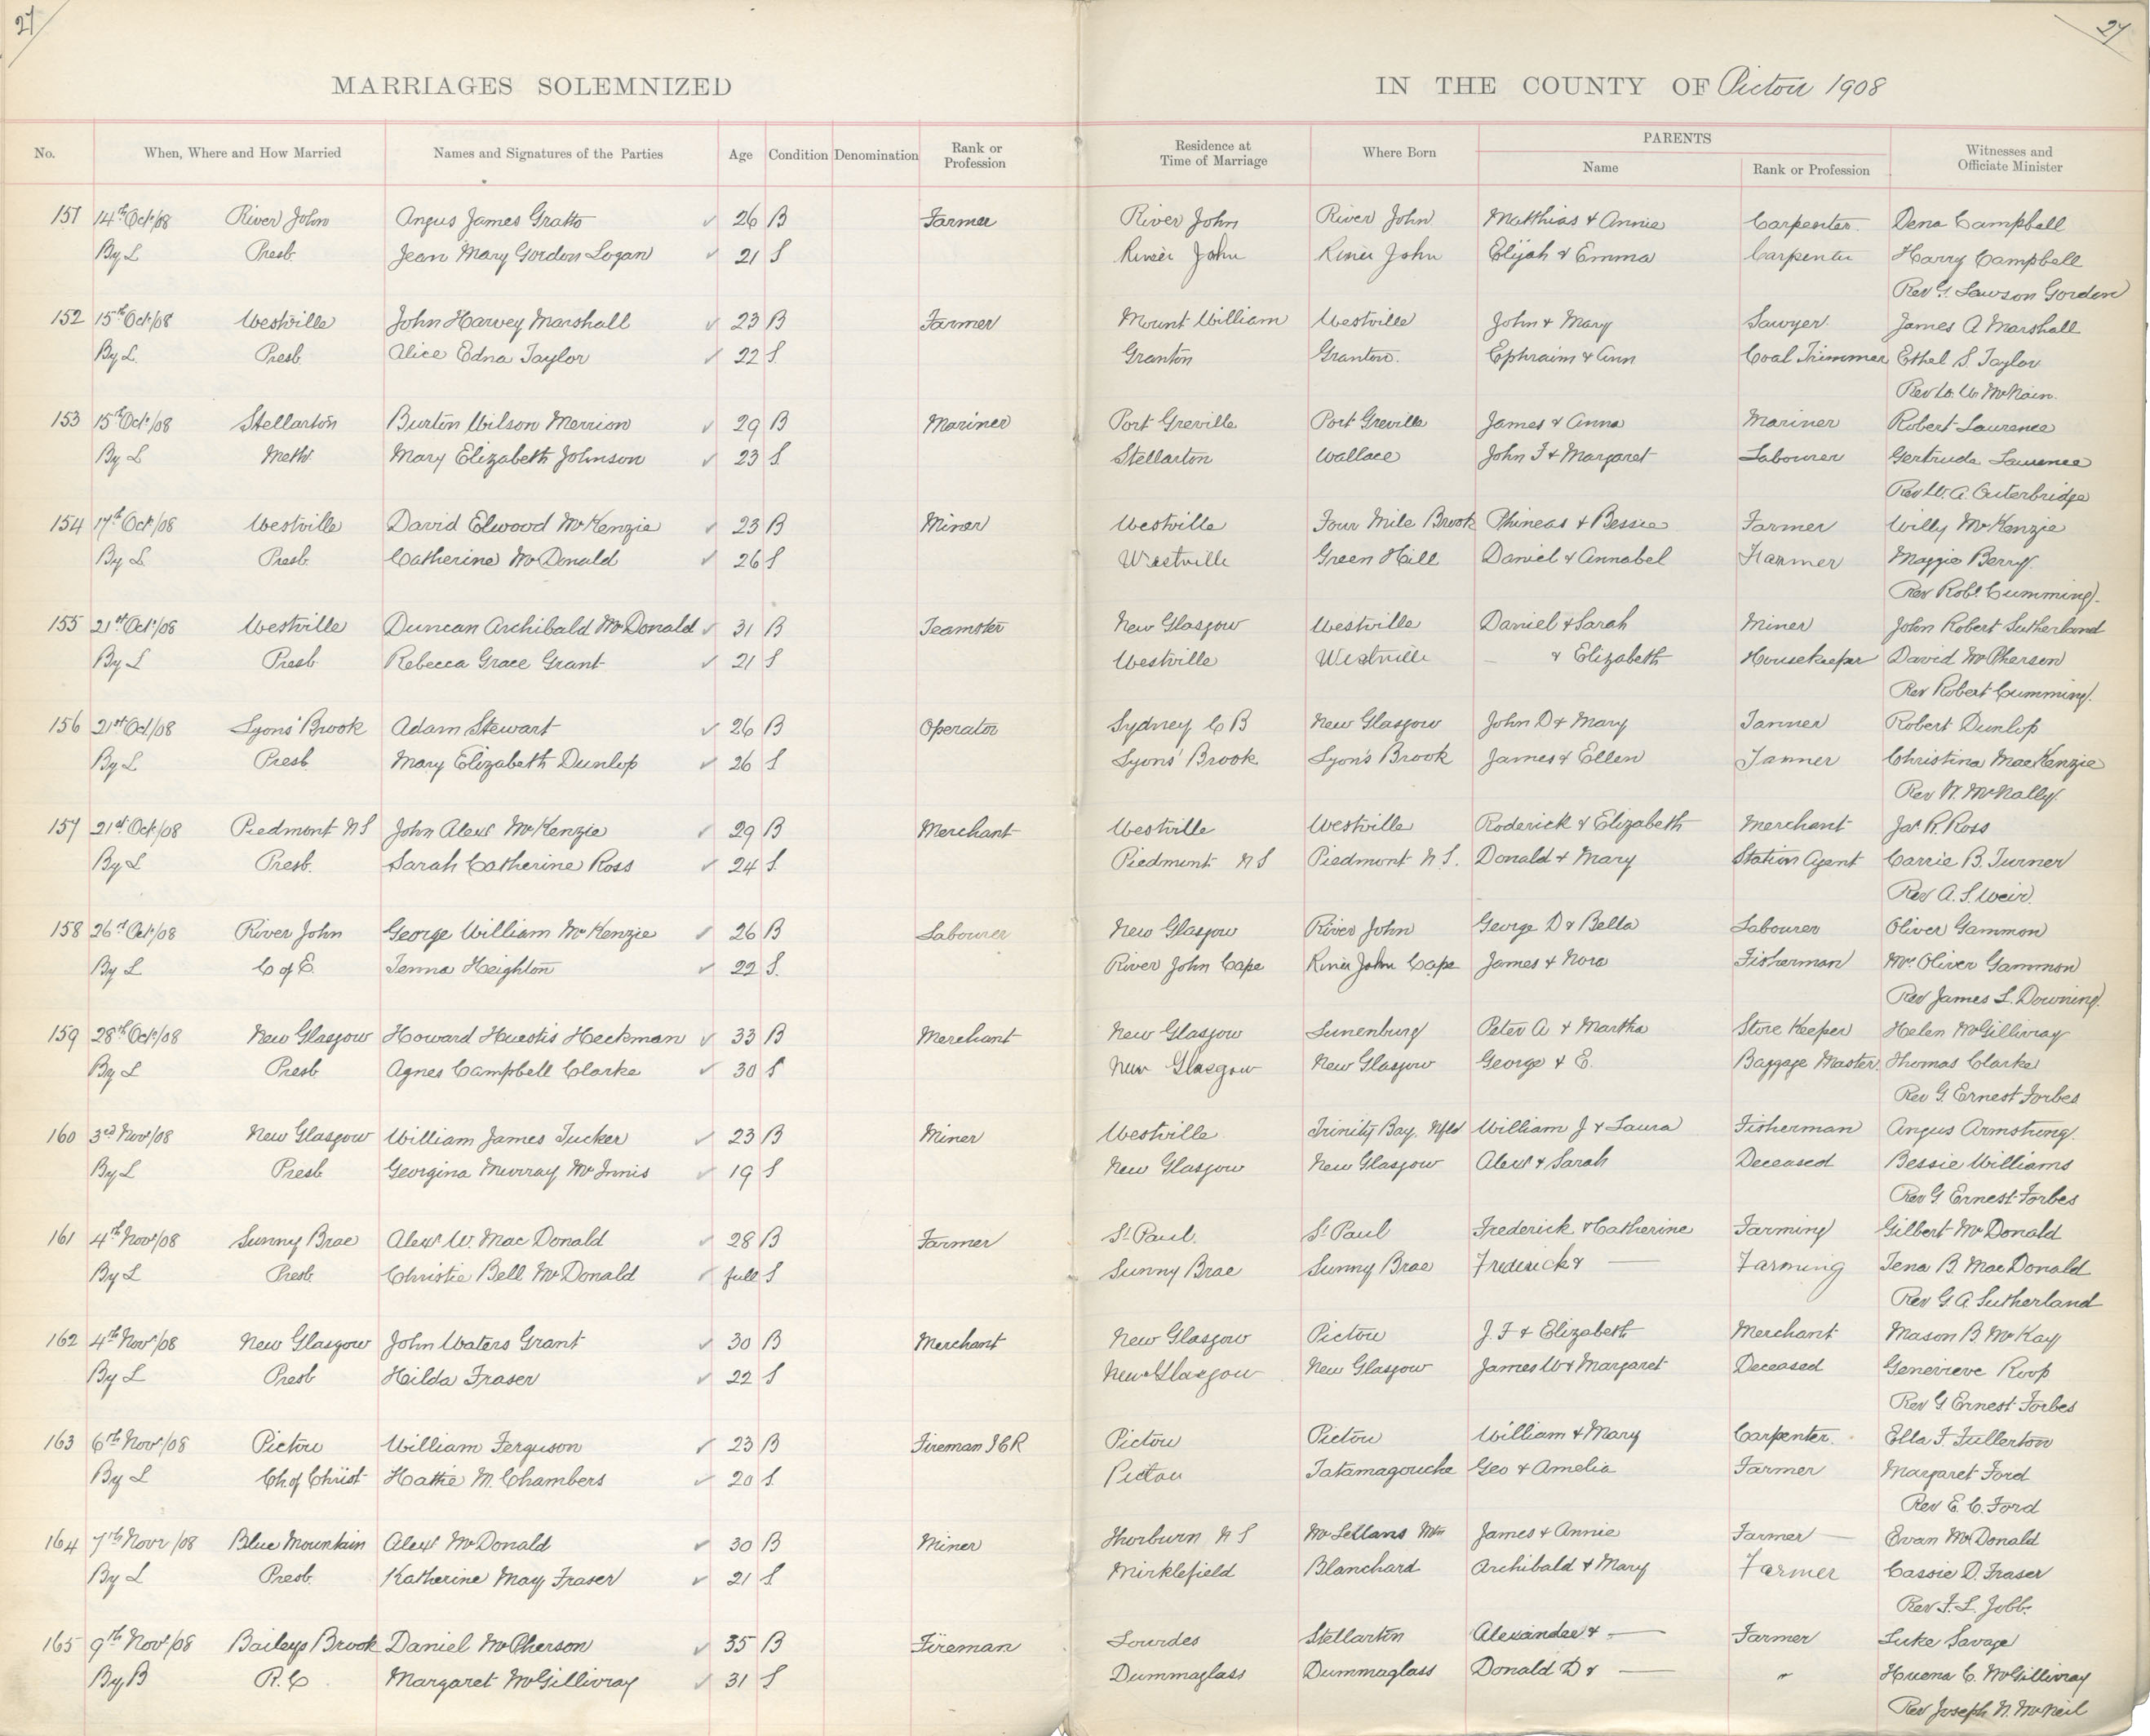 27 27
MARRIAGES SOLEMNIZED IN THE COUNTY OF Pictou 1908
No. When, Where and How Married Names and Signatures of the Parties Age Condition Denomination Rank or Profession Residence at Time of Marriage Where Born PARENTS Name Rank or Profession Witnesses and Officiate Minister
151 14th Oct/08 River John Angus James Gratto ✓ 26 B Farmer River John River John Matthias & Annie Carpenter Dena Campbell
By L Presb. Jean Mary Gordon Logan ✓ 21 S River John River John Elijah & Emma Carpenter Harry Campbell
Rev G. Lawson Gordon
152 15th Oct/08 Westville John Harvey Marshall ✓ 23 B Farmer Mount William Westville John & Mary Sawyer James A Marshall
By L. Presb. Alice Edna Taylor ✓ 22 S. Granton Granton. Ephraim & Ann Coal Trimmer Ethel S. Taylor
Rev W. W McNairn.
153 15th Oct/08 Stellarton Burton Wilson Merriam ✓ 29 B Mariner Port Greville Port Greville James & Anna Mariner Robert Laurence
By L Meth. Mary Elizabeth Johnson ✓ 23 S. Stellarton Wallace John F & Margaret Labourer Gertrude Laurence
Rev W. A. Outerbridge
154 17th Oct/08 Westville David Elwood McKenzie ✓ 23 B Miner Westville Four Mile Brook Phineas & Bessie Farmer Willy McKenzie
By L Presb. Catherine McDonald ✓ 26 S Westville Green Hill Daniel & Annabel Farmer Maggie Berry
Rev Robt. Cumming.
155 21st Oct/08 Westville Duncan Archibald McDonald ✓ 31 B Teamster New Glasgow Westville Daniel & Sarah Miner John Robert Sutherland
By L Presb Rebecca Grace Grant ✓ 21 S Westville Westville – & Elizabeth Housekeeper David McPherson
Rev Robert Cumming.
156 21st Oct/08 Lyons' Brook Adam Stewart ✓ 26 B Operator Sydney C B New Glasgow John D & Mary Tanner Robert Dunlop
By L Presb Mary Elizabeth Dunlop ✓ 26 S Lyons' Brook Lyon's Brook James & Ellen Tanner Christina MacKenzie
Rev W. McNally.
157 21st Oct/08 Piedmont NS John Alexr McKenzie ✓ 29 B Merchant Westville Westville Roderick & Elizabeth Merchant Jas R. Ross
By L Presb. Sarah Catherine Ross ✓ 24 S. Piedmont N S Piedmont N S. Donald & Mary Station Agent Carrie B. Turner
Rev A. S. Weir.
158 26st Oct/08 River John George William McKenzie ✓ 26 B Labourer New Glasgow River John George D & Bella Labourer Oliver Gammon
By L C of E. Tenna Heighton ✓ 22 S. River John Cape River John Cape James & Nora Fisherman Mrs Oliver Gammon
Rev James L. Downing.
159 28th Oct/08 New Glasgow Howard Huestis Heckman ✓ 33 B Merchant New Glasgow Lunenburg Peter A & Martha Store Keeper Helen McGillivray
By L Presb Agnes Campbell Clarke ✓ 30 S New Glasgow New Glasgow George & E. Baggage Master Thomas Clarke
Rev G. Ernest Forbes
160 3rd Nov/08 New Glasgow William James Tucker ✓ 23 B Miner Westville Trinity Bay, Nfld William J & Laura Fisherman Angus Armstrong.
By L Presb Georgina Murray McInnis ✓ 19 S New Glasgow New Glasgow Alexr & Sarah Deceased Bessie Williams
Rev G Ernest Forbes
161 4th Nov/08 Sunny Brae Alexr W. MacDonald ✓ 28 B Farmer St Paul. St Paul Frederick & Catherine Farming Gilbert McDonald
By L Presb Christie Bell McDonald ✓ full S Sunny Brae Sunny Brae Frederick & — Farming Tena B. MacDonald
Rev G. A. Sutherland
162 4th Nov/08 New Glasgow John Waters Grant ✓ 30 B Merchant New Glasgow Pictou J. F & Elizabeth Merchant Mason B. McKay
By L Presb Hilda Fraser ✓ 22 S New Glasgow New Glasgow James W & Margaret Deceased Genevieve Roop
Rev G Ernest Forbes
163 6th Nov/08 Pictou William Ferguson ✓ 23 B Fireman ICR Pictou Pictou William & Mary Carpenter. Ella F. Fullerton
By L Ch. of Christ Hattie M. Chambers ✓ 20 S. Pictou Tatamagouche Geo & Amelia Farmer Margaret Ford
Rev E. C. Ford
164 7th Novr/08 Blue Mountain Alexr McDonald ✓ 30 B Miner Thorburn N S McLellans Mtn James & Annie Farmer — Evan McDonald
By L Presb. Katherine May Fraser ✓ 21 S Mirklefield Blanchard Archibald & Mary Farmer Cassie D. Fraser
Rev F. L. Jobb.
165 9th Nov/08 Baileys Brook Daniel McPherson ✓ 35 B Fireman Lourdes Stellarton Alexander & — Farmer Luke Savage
By B R. C. Margaret McGillivray ✓ 31 S Dummaglass Dummaglass Donald D & — " Huena C. McGillivray
Rev Joseph N. McNeil